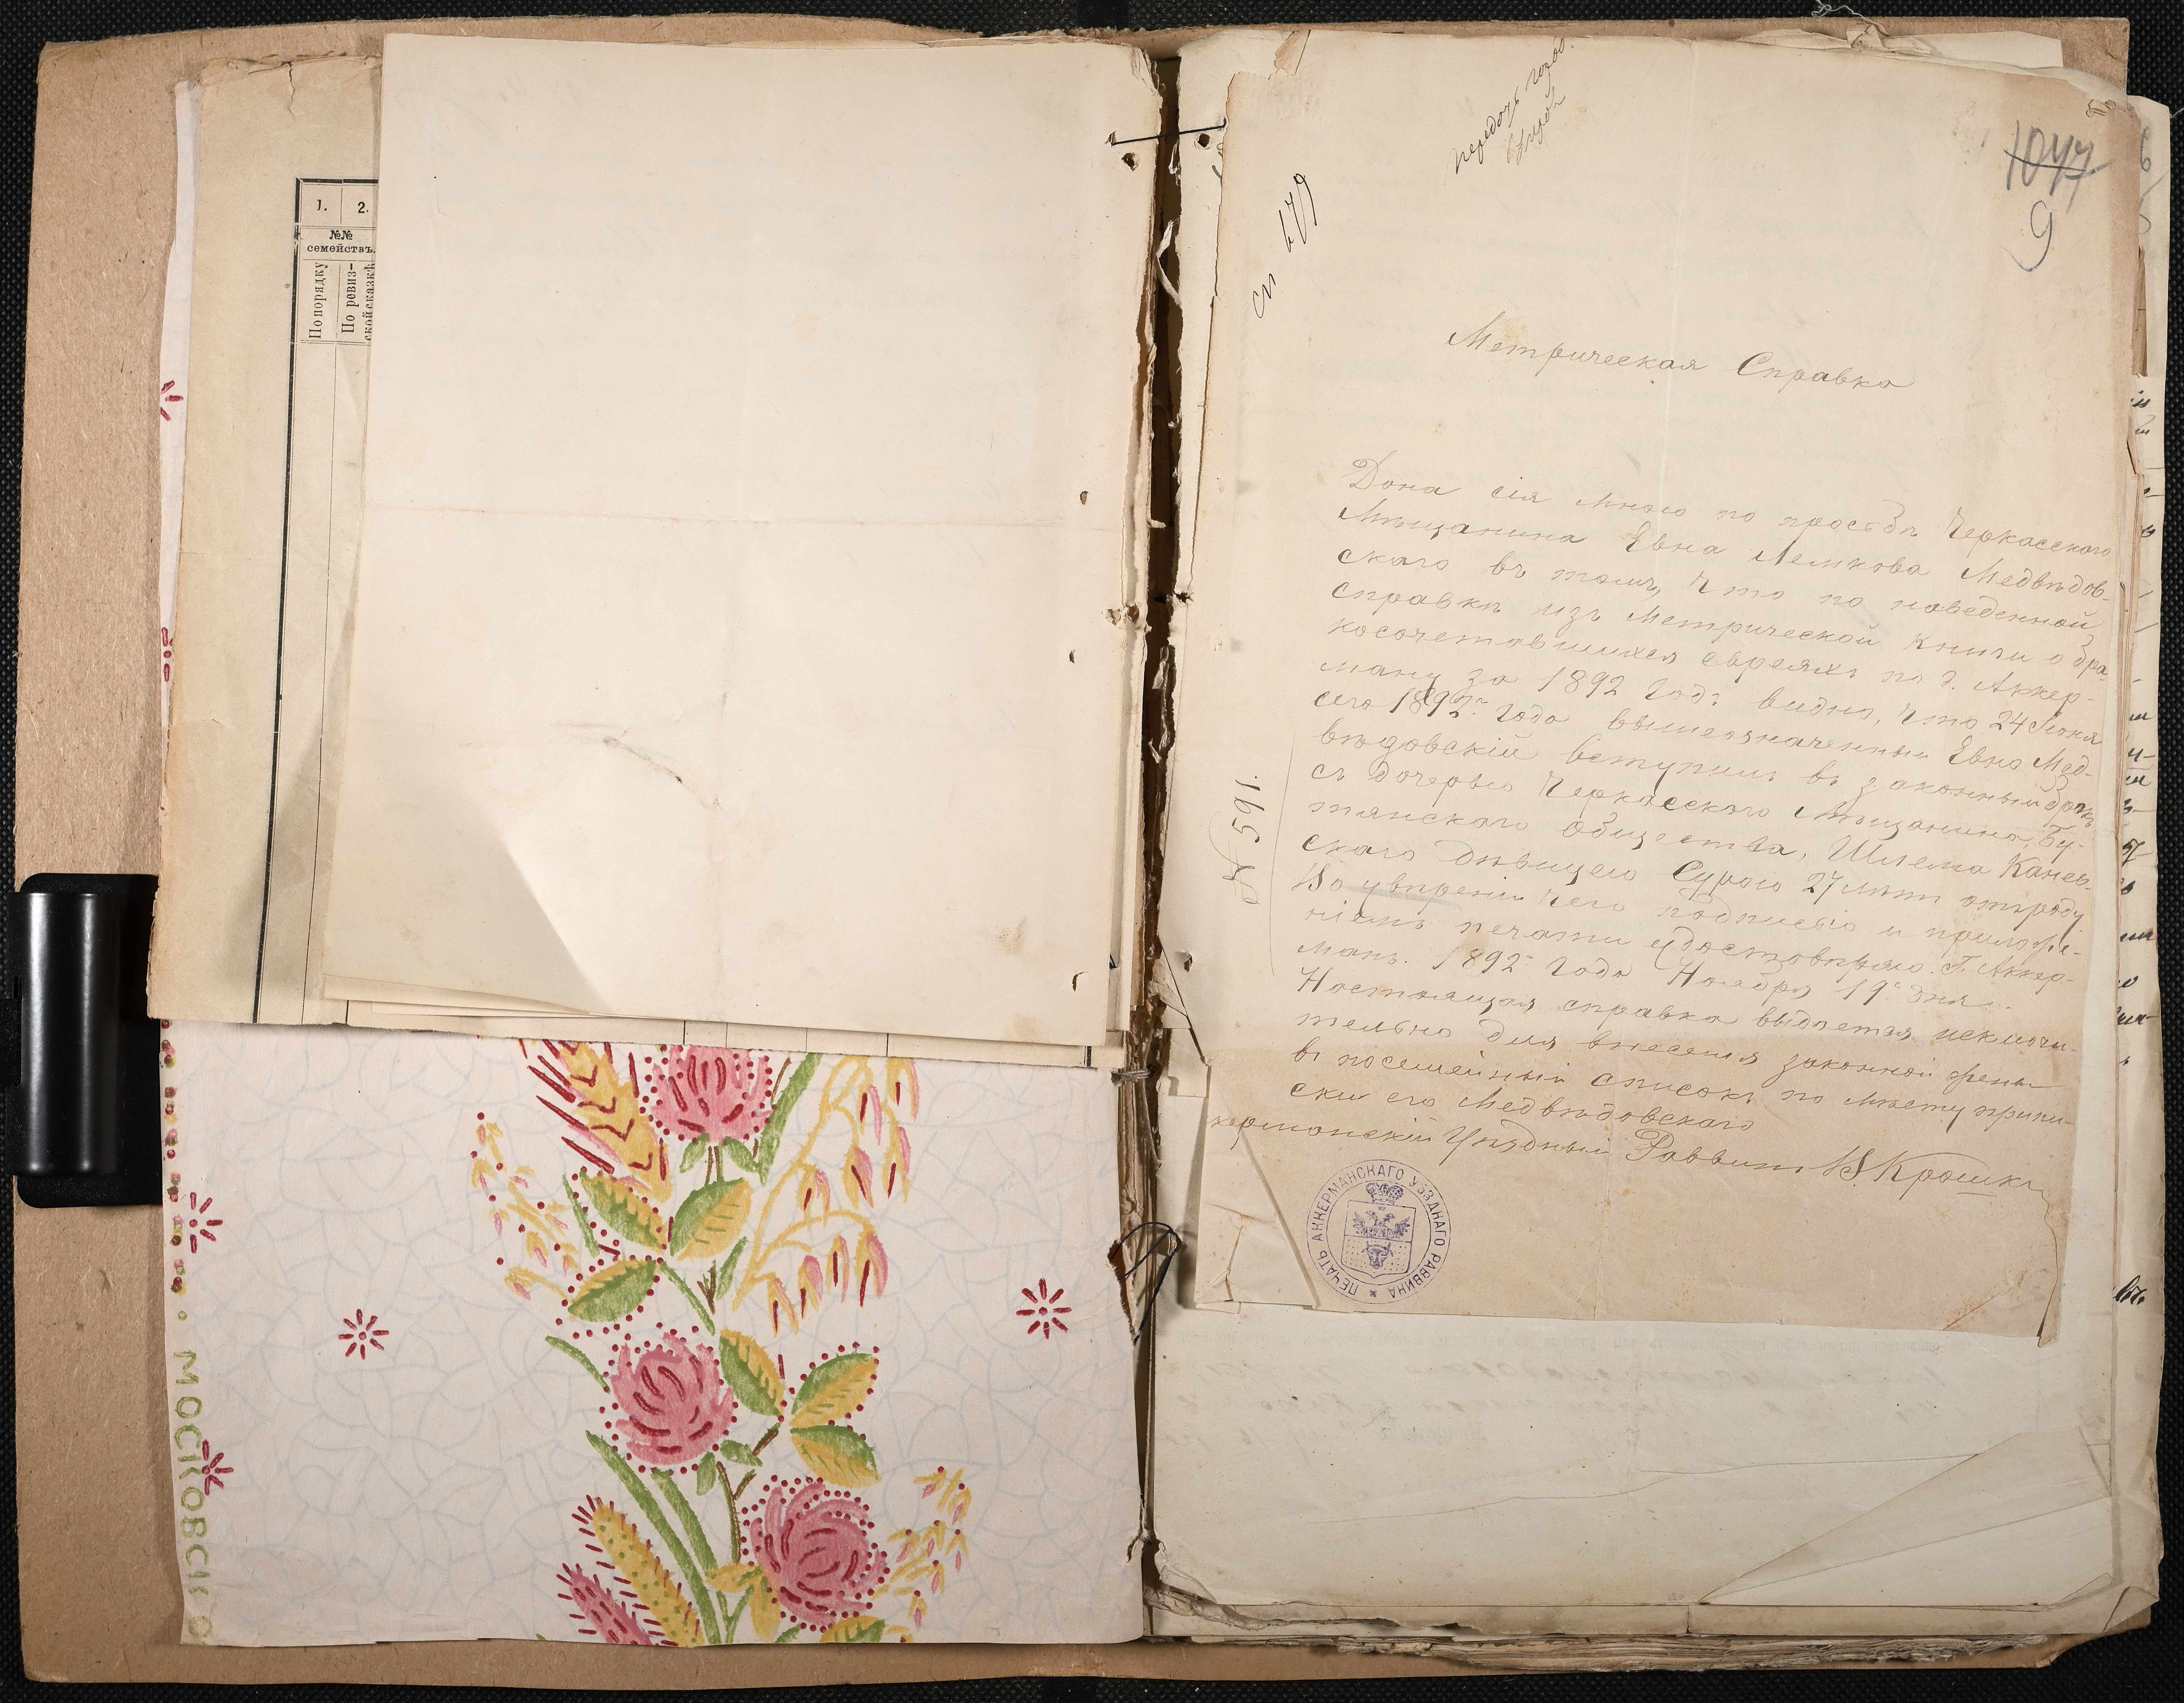 1.
2.
№№
семействъ.
По порядку
По ревиз-
ской сказкѣ
МОСКОВСК
1047
9
№ 591.
Метрическая Справка
Дана сія мною по просьбѣ Черкасскаго
Мѣщанина Евна Лемкова Медвѣдов-
скаго въ томъ, что по наведенной
справкѣ изъ Метрической Книги о бра-
косочетавшихся евреяхъ по г. Аккер-
ману за 1892 годъ видно, что 24 Іюня
сего 1892го года вышеозначенный Евно Мед-
вѣдовскій вступилъ въ законный бракъ
съ дочерью Черкасскаго Мѣщанина, Бу-
тянскаго Общества, Шлема Канев-
скаго дѣвицею Сурою 27 лѣтъ отъ роду
Въ увѣреніи чего подписью и приложе-
ніемъ печати удостовѣряю. Г. Аккер-
манъ. 1892 года Ноября 19 дня.
Настоящая справка выдается исключи-
тельно для внесенія законной жены
въ посемейный списокъ по мѣсту припи-
ски его Медвѣдовскаго
керманскій Уѣздный Раввинъ
ПЕЧАТЬ АККЕРМАНСКАГО УѢЗДНАГО РАВВИНА